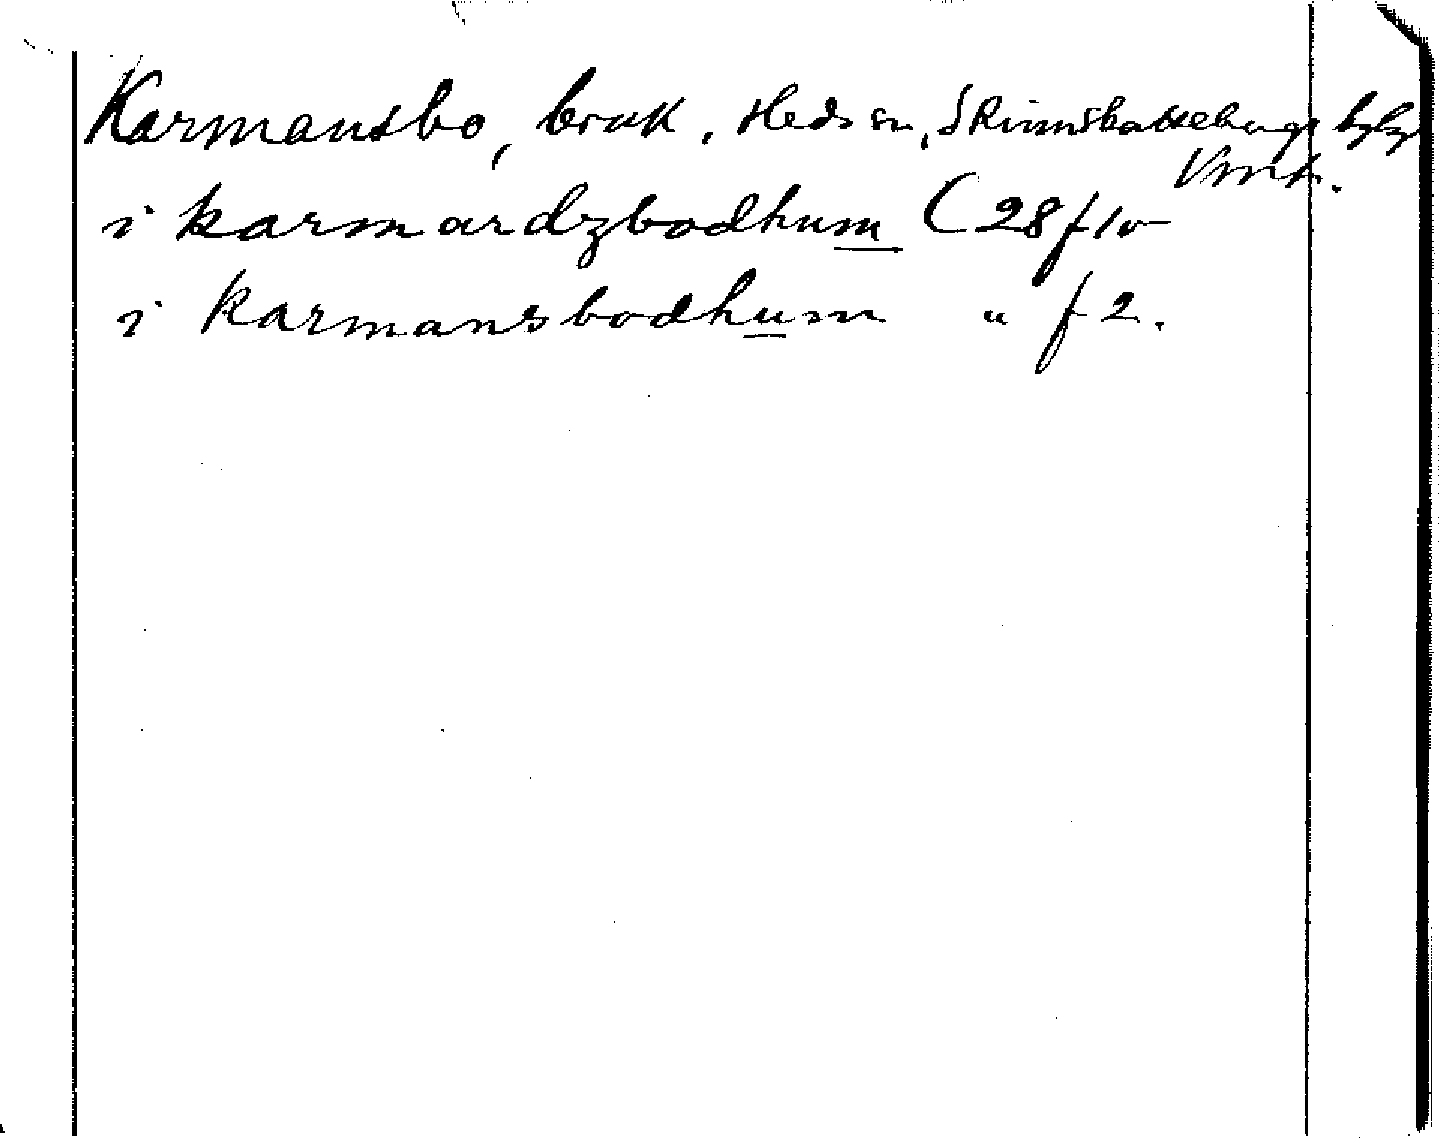 Karmansbo, bruk, Heds sn, Skinnskattebergs bglg
Vml.
i karmardzbodhum (28 f 10
i karmansbodhum " f 2.